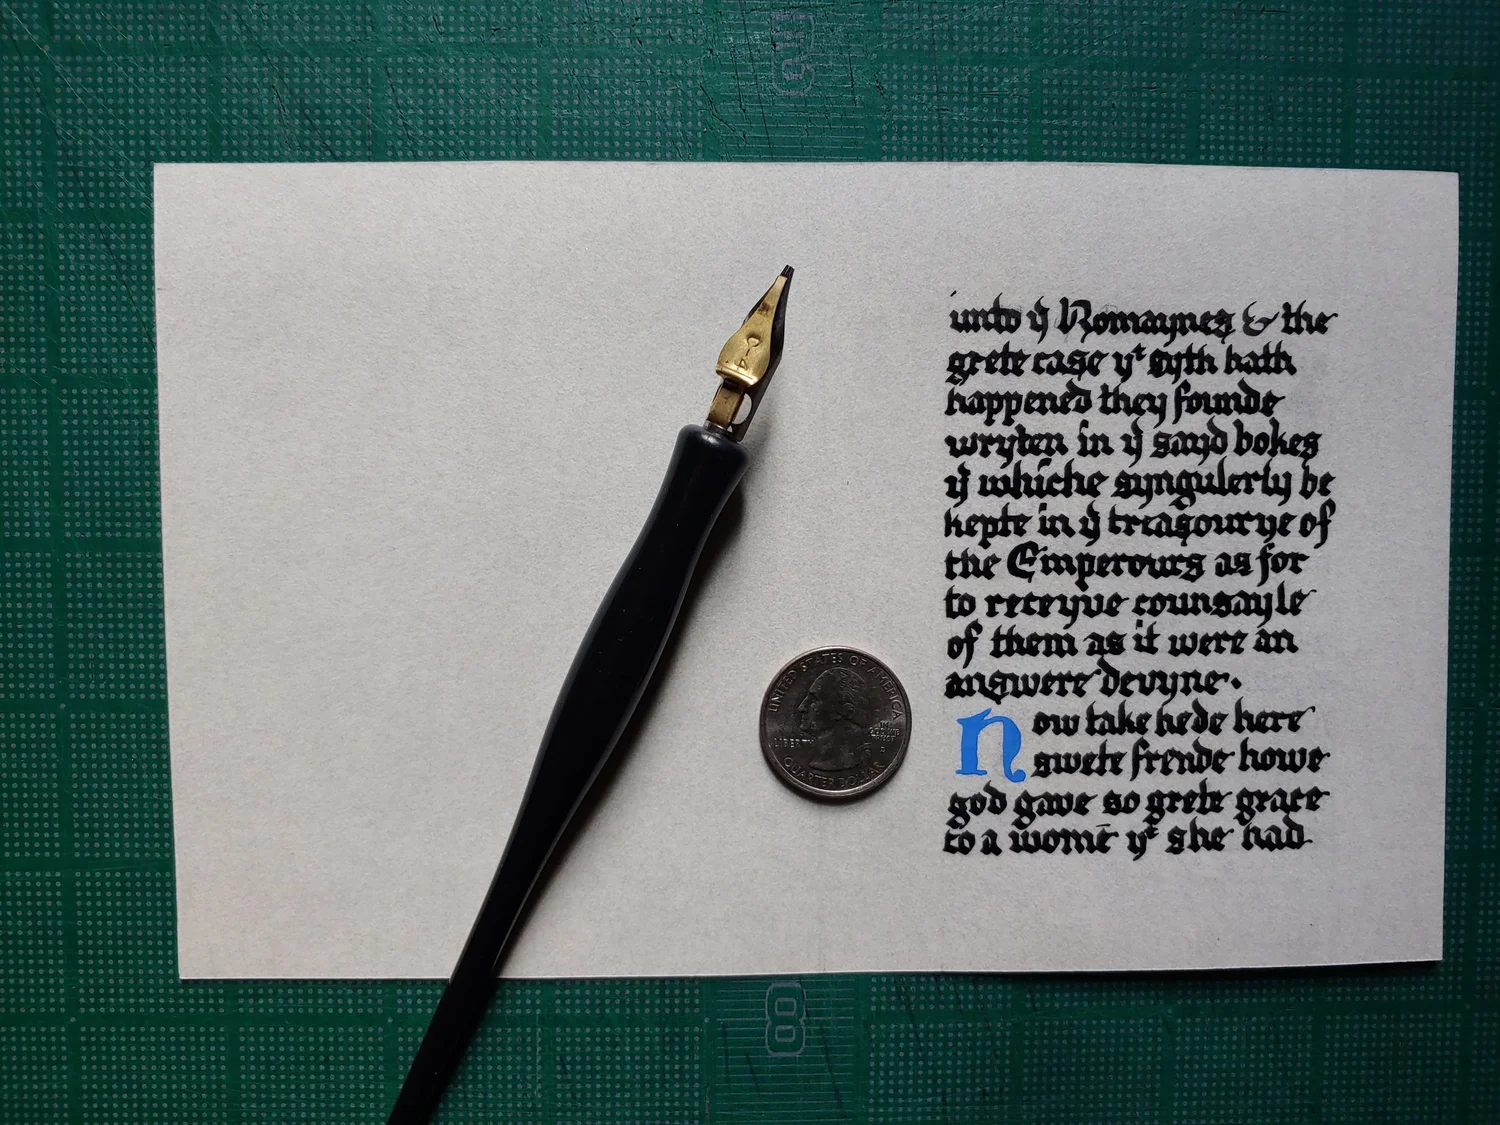 unto yͤ Romaynes & the
grete case yͭ syth hath
happened they founde
wryten in yͤ sayd bokes
yͤ whiche syngulerly be
kepte in yͤ treasourye of
the Emperours as for
to receyve counsayle
of them as it were an
answere devyne.
Now take hede here
swete frende howe
god gave so grete grace
to a womē yͭ she had
UNITED STATES OF AMERICA
LIBERTY
IN GOD WE TRUST
QUARTER DOLLAR
8